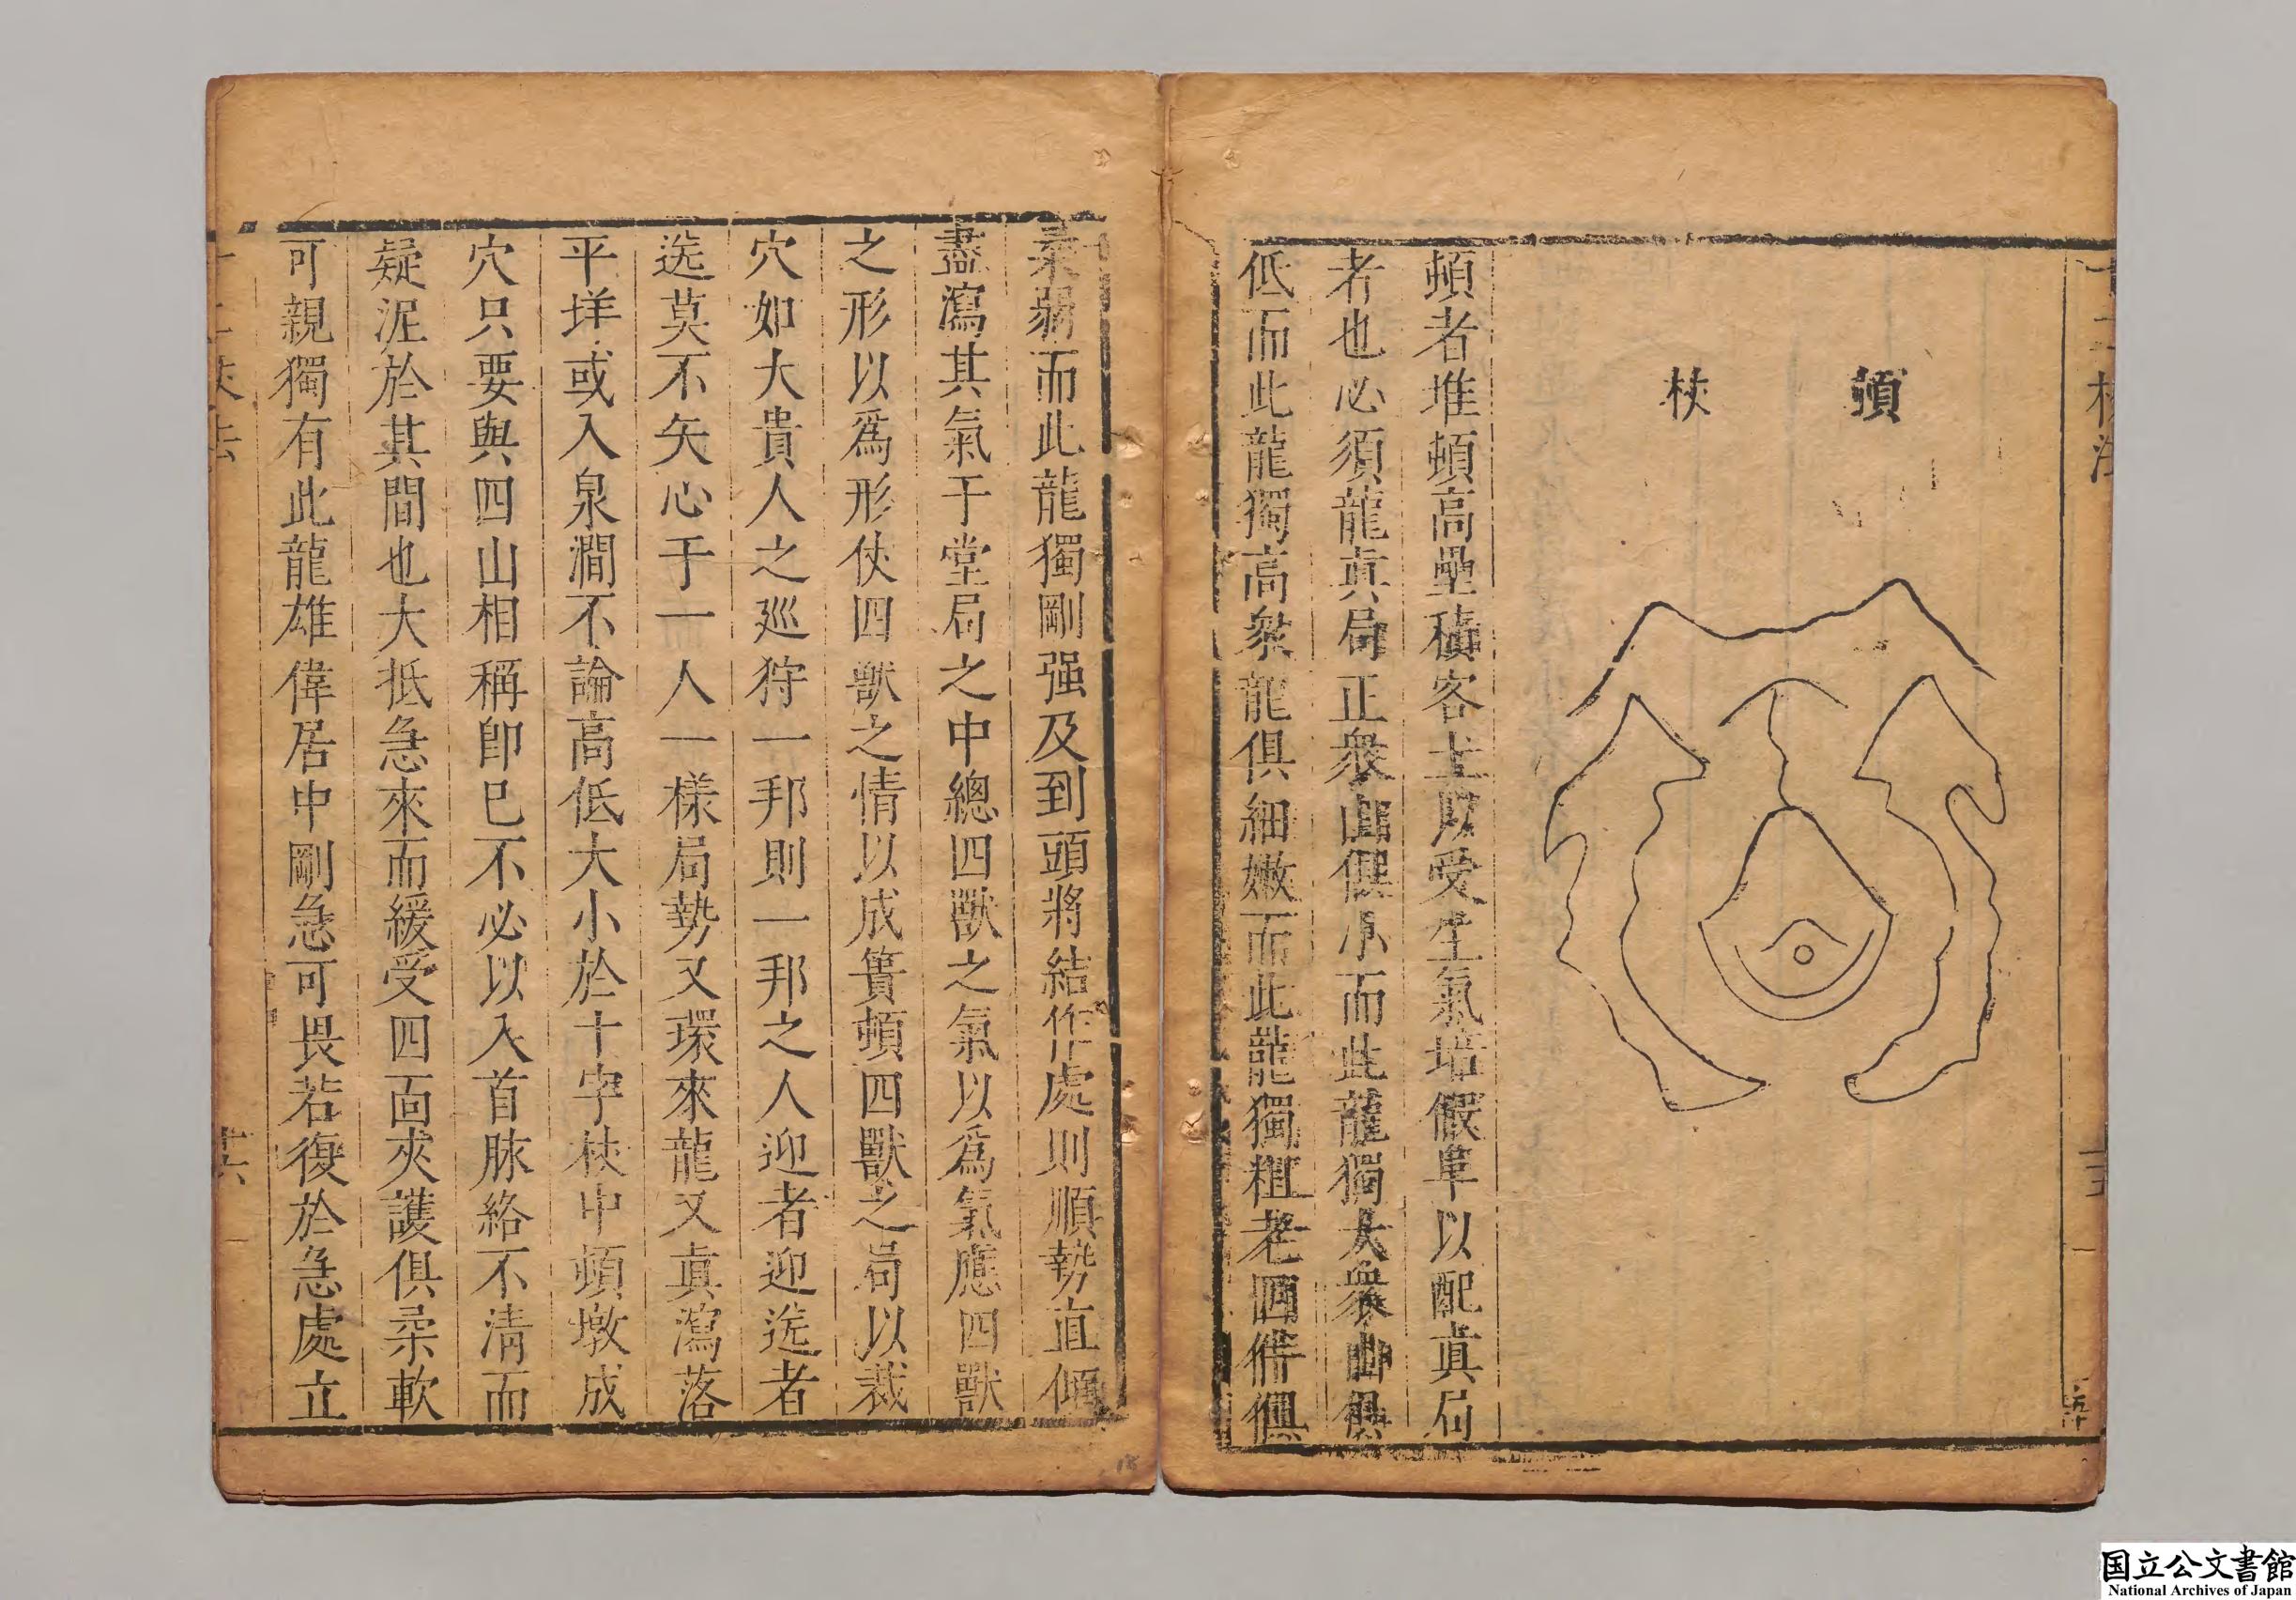 十二杖法
十五
頓杖
頓者堆頓高壘積客土以受生氣培假阜以配真局
者也必須龍真局正衆山俱小而此龍獨大衆山俱
低而此龍獨高衆龍俱細嫩而此龍獨粗老四俻俱
柔弱而此龍獨剛强及到頭將結作處則順勢直傾
盡瀉其氣于堂局之中總四獸之氣以爲氣應四獸
之形以爲形使四獸之情以成實頓四獸之局以裁
穴如大貴人之廵狩一邦則一邦之人迎者迎送者
送莫不矢心于一人一樣局勢又環來龍又真瀉落
平垟或入泉澗不論高低大小於十字杖中頓墩成
穴只要與四山相稱卽已不必以入首脉絡不清而
疑泥於其間也大抵急來而緩受四面夾護俱柔軟
可親獨有此龍雄偉居中剛急可畏若復於急處立
十二杖法
十六
国立公文書館
National Archives of Japan